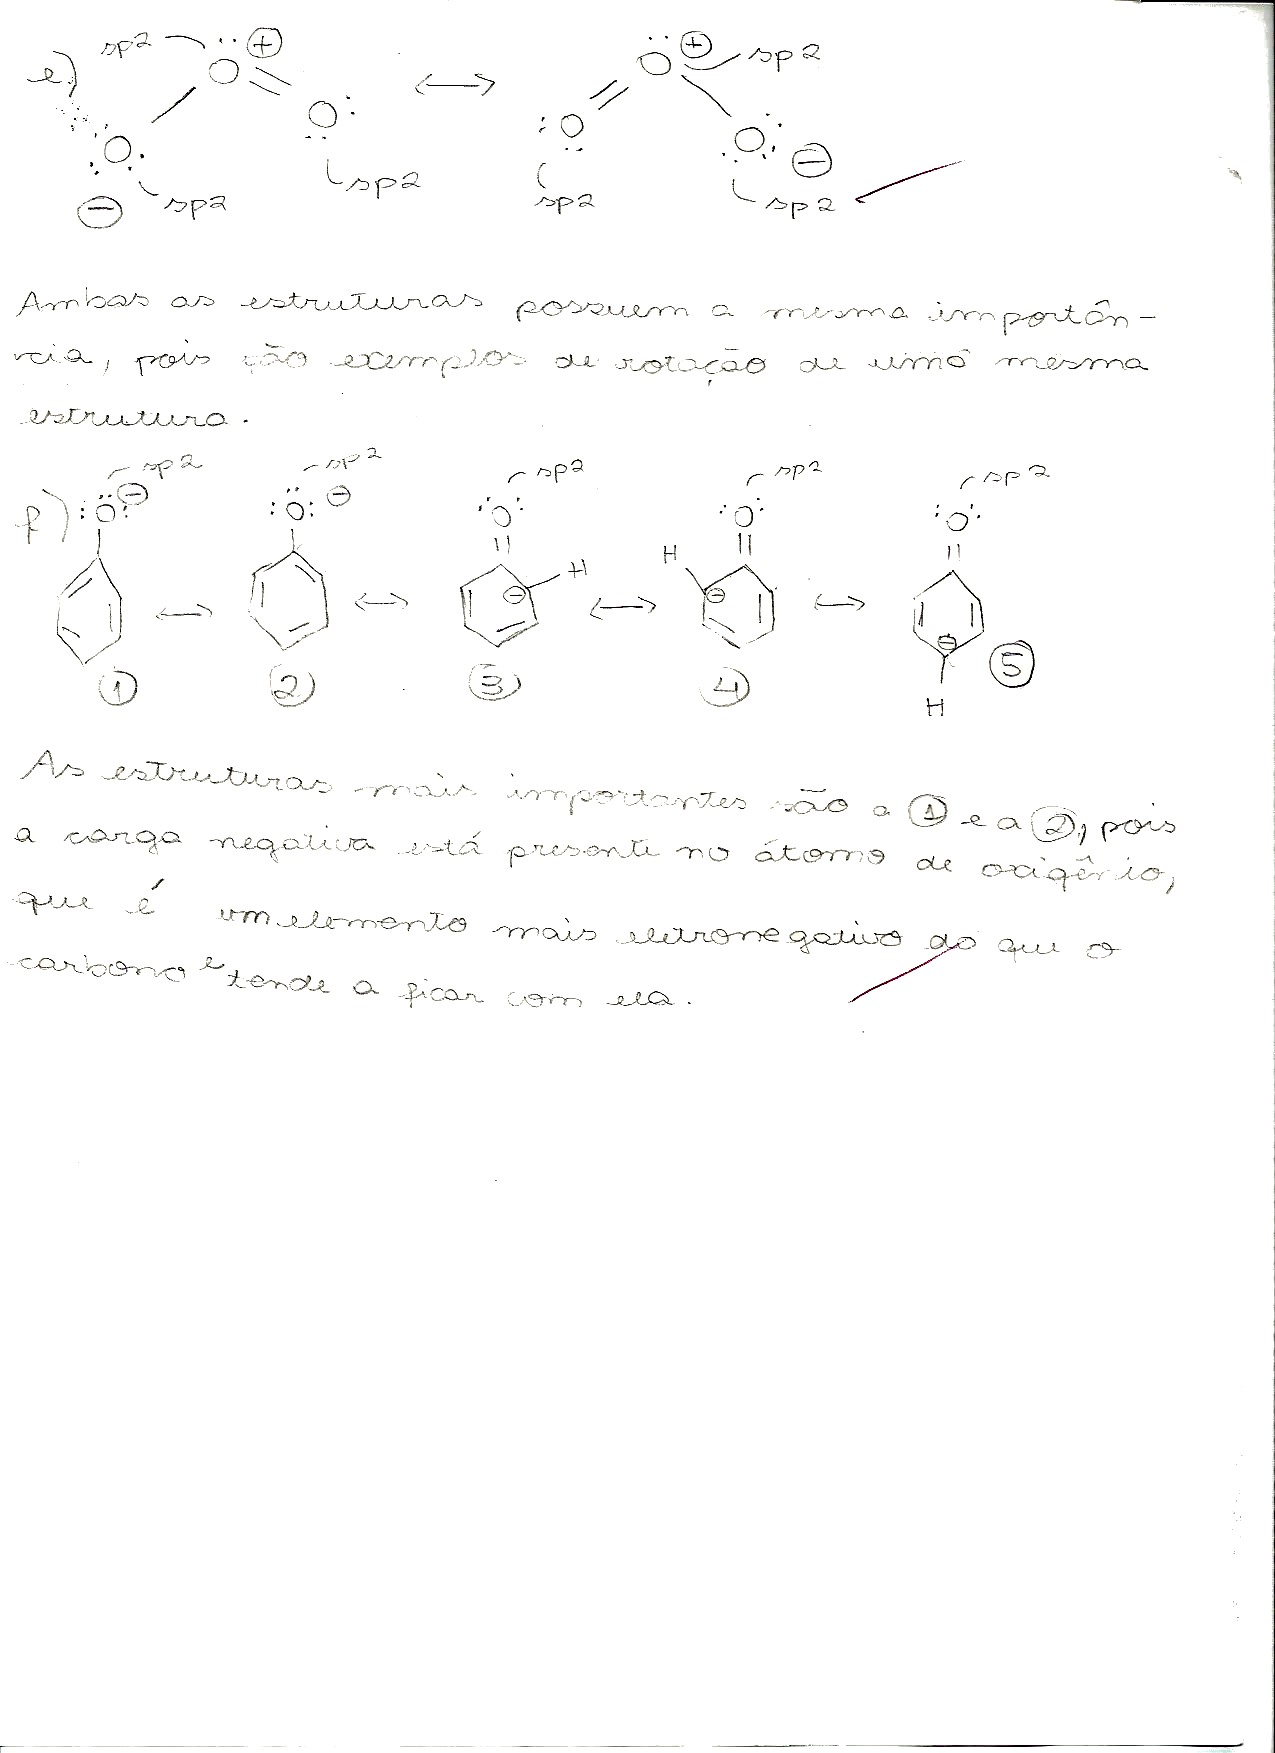 sp2 ⊕ ⊕ sp2
e) O O ↔ O O
O O
⊖ sp2 sp2 sp2 sp2 ⊖
Ambas as estruturas possuem a mesma importân-
cia, pois são exemplos de rotação de uma mesma
estrutura.
sp2 sp2 sp2 sp2 sp2
f) :O: ⊖ :O: ⊖ O O O
H H
⊖ ⊖ ⊖
↔ ↔ ↔ ↔
① ② ③ ④ ⑤
H
As estruturas mais importantes são a ① e a ②, pois
a carga negativa está presente no átomo de oxigênio,
que é um elemento mais eletronegativo do que o
carbono e tende a ficar com ela.